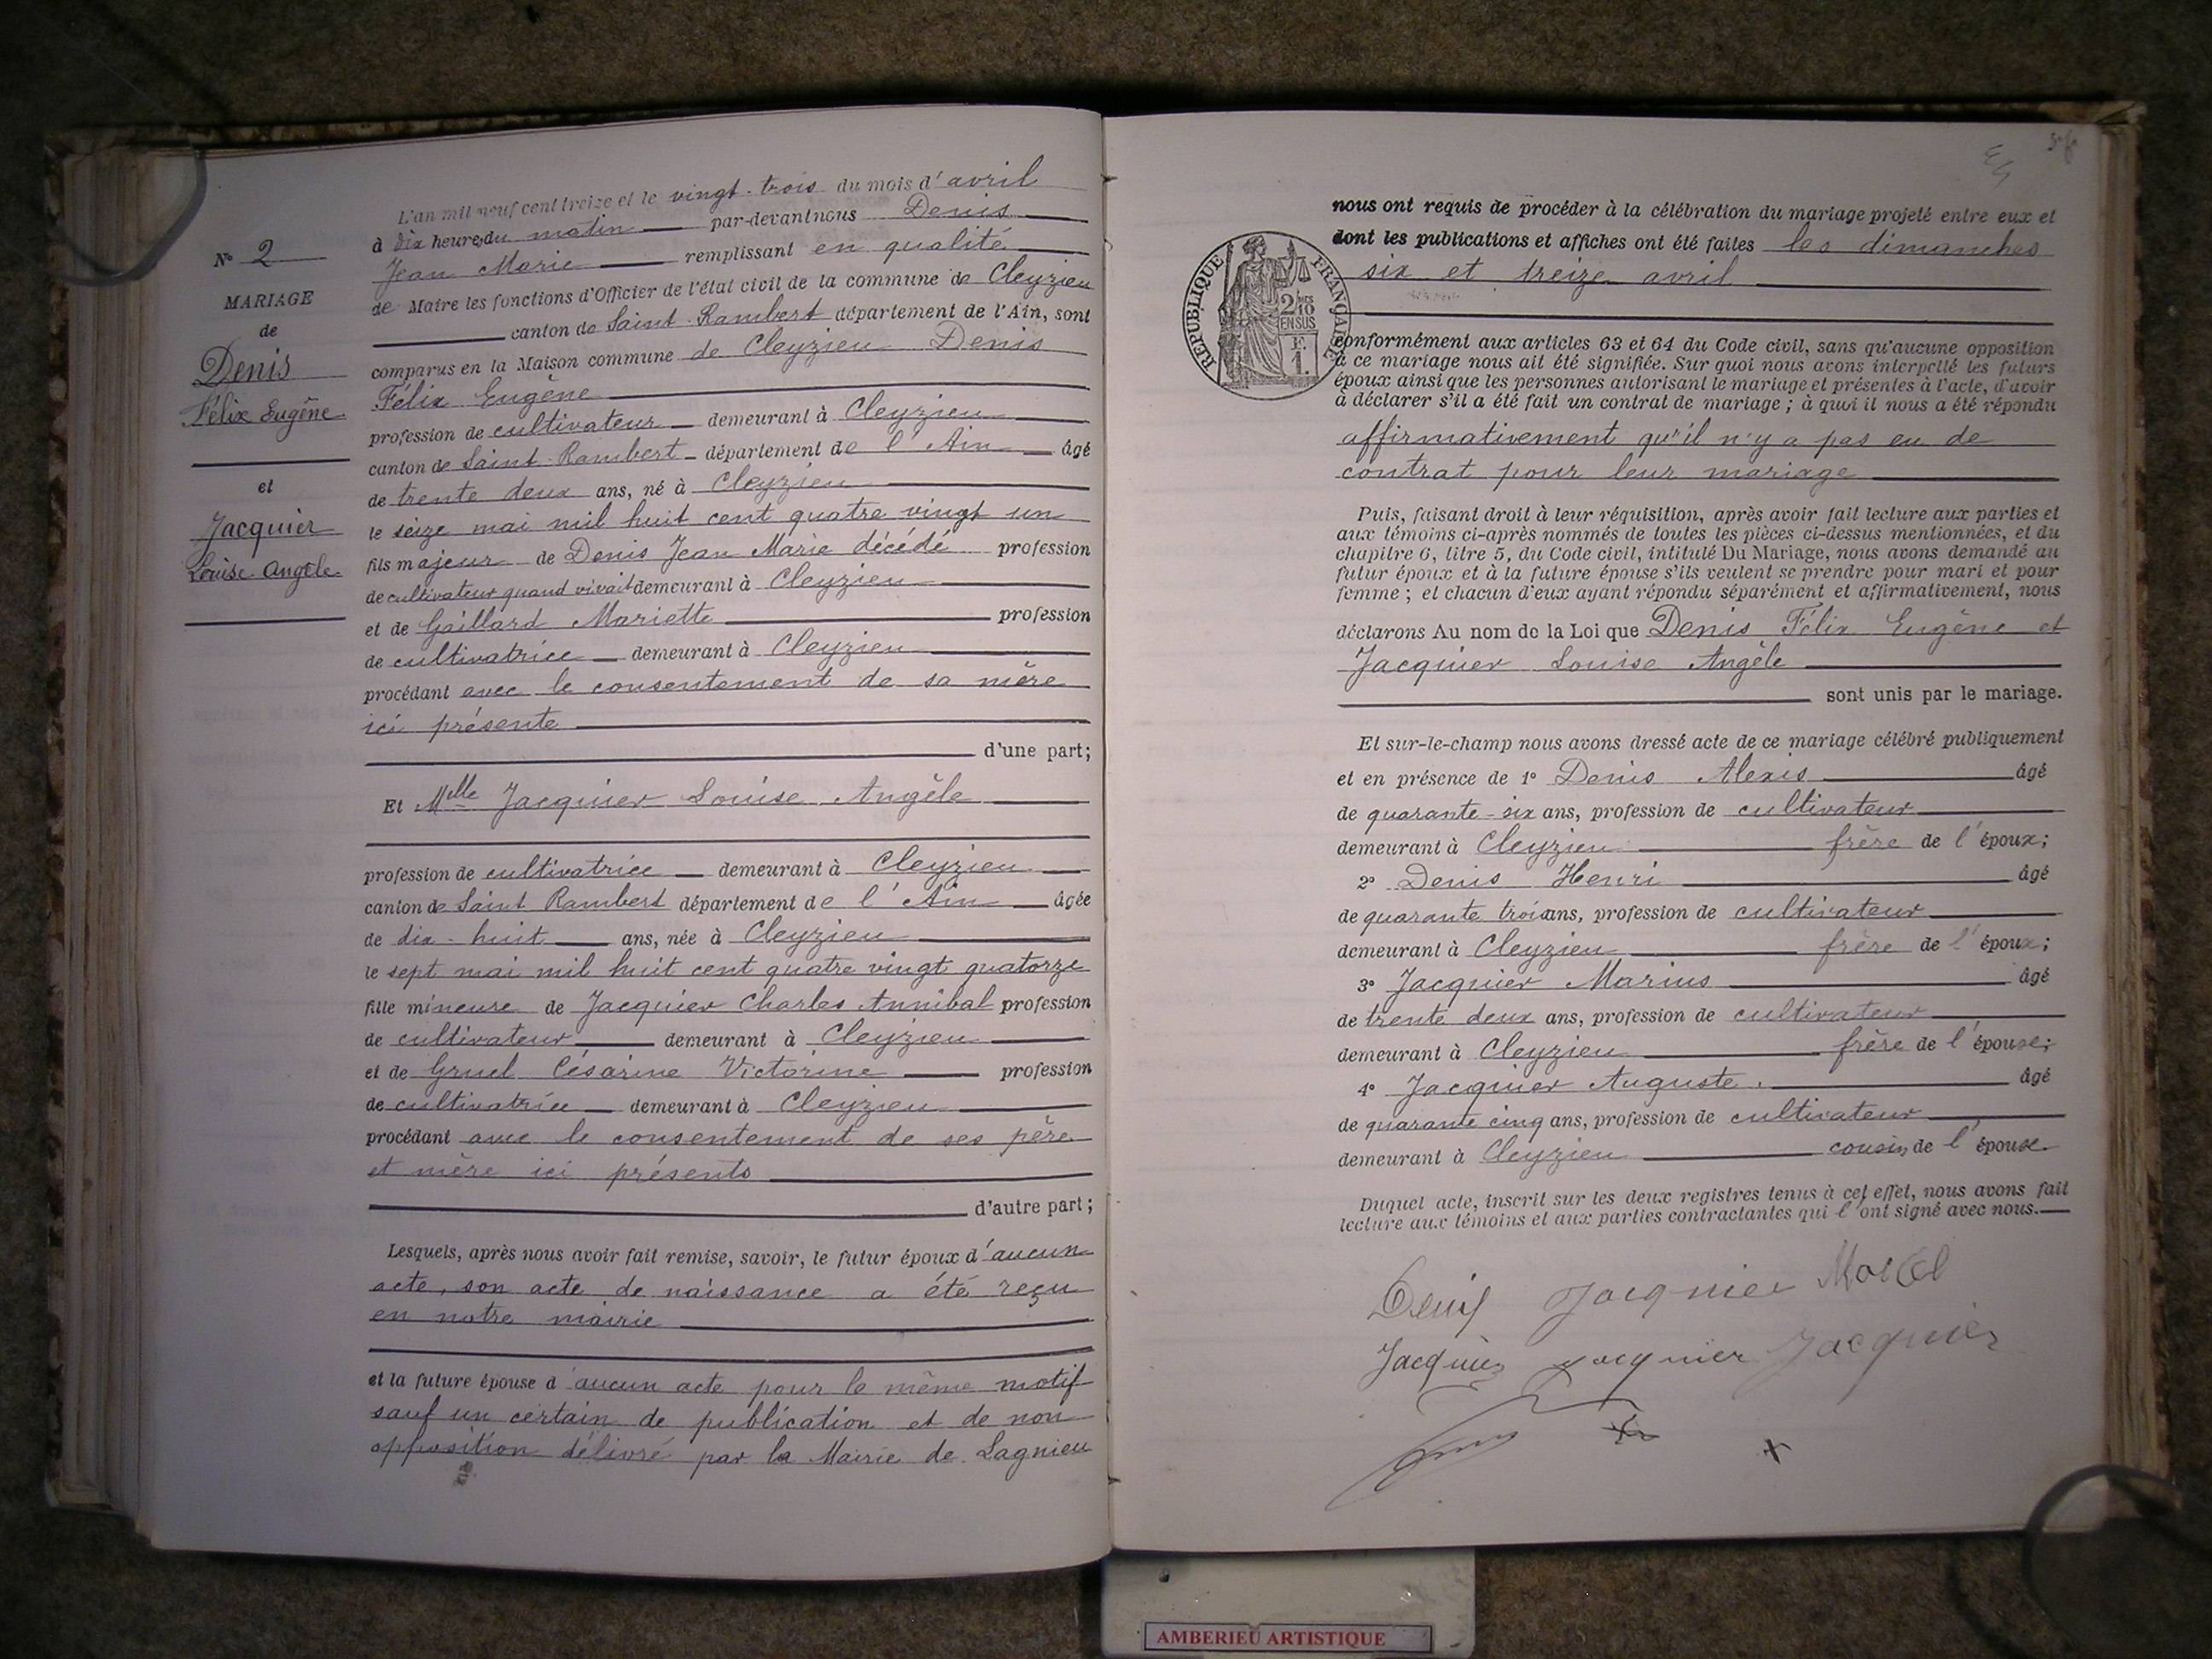 L'an mil neuf cent treize et le vingt-trois du mois d'avril
à dix heures du matin par-devant nous Denis
Jean Marie remplissant en qualité
de Maire les fonctions d'Officier de l'état civil de la commune de Cleyzieu
canton de Saint-Rambert département de l'Ain, sont
comparus en la Maison commune de Cleyzieu Denis
Félix Eugène
profession de cultivateur demeurant à Cleyzieu
canton de Saint-Rambert département de l'Ain âgé
de trente deux ans, né à Cleyzieu
le seize mai mil huit cent quatre vingt un
fils majeur de Denis Jean Marie décédé profession
de cultivateur quand vivait demeurant à Cleyzieu
et de Gaillard Mariette profession
de cultivatrice demeurant à Cleyzieu
procédant avec le consentement de sa mère
ici présente
d'une part;
Et Melle Jacquier Louise Angèle
profession de cultivatrice demeurant à Cleyzieu
canton de Saint Rambert département de l'Ain âgée
de dix-huit ans, née à Cleyzieu
le sept mai mil huit cent quatre vingt quatorze
fille mineure de Jacquier Charles Annibal profession
de cultivateur demeurant à Cleyzieu
et de Gruel Césarine Victorine profession
de cultivatrice demeurant à Cleyzieu
procédant avec le consentement de ses père
et mère ici présents
d'autre part;
Lesquels, après nous avoir fait remise, savoir, le futur époux d'aucun
acte, son acte de naissance a été reçu
en notre mairie
et la future épouse d'aucun acte pour le même motif
sauf un certain de publication et de non
opposition délivré par la Mairie de Lagnieu
N° 2
MARIAGE
de
Denis
Félix Eugène
et
Jacquier
Louise Angèle
nous ont requis de procéder à la célébration du mariage projeté entre eux et
dont les publications et affiches ont été faites les dimanches
six et treize avril
RÉPUBLIQUE FRANÇAISE
2/10
EN SUS
F.
1.
conformément aux articles 63 et 64 du Code civil, sans qu'aucune opposition
à ce mariage nous ait été signifiée. Sur quoi nous avons interpellé les futurs
époux ainsi que les personnes autorisant le mariage et présentes à l'acte, d'avoir
à déclarer s'il a été fait un contrat de mariage; à quoi il nous a été répondu
affirmativement qu'il n'y a pas eu de
contrat pour leur mariage
Puis, faisant droit à leur réquisition, après avoir fait lecture aux parties et
aux témoins ci-après nommés de toutes les pièces ci-dessus mentionnées, et du
chapitre 6, titre 5, du Code civil, intitulé Du Mariage, nous avons demandé au
futur époux et à la future épouse s'ils veulent se prendre pour mari et pour
femme; et chacun d'eux ayant répondu séparément et affirmativement, nous
déclarons Au nom de la Loi que Denis Félix Eugène et
Jacquier Louise Angèle
sont unis par le mariage.
Et sur-le-champ nous avons dressé acte de ce mariage célébré publiquement
et en présence de 1° Denis Alexis âgé
de quarante-six ans, profession de cultivateur
demeurant à Cleyzieu frère de l'époux;
2° Denis Henri âgé
de quarante trois ans, profession de cultivateur
demeurant à Cleyzieu frère de l'époux;
3° Jacquier Marius âgé
de trente deux ans, profession de cultivateur
demeurant à Cleyzieu frère de l'épouse;
4° Jacquier Auguste. âgé
de quarante cinq ans, profession de cultivateur
demeurant à Cleyzieu cousin de l'épouse.
Duquel acte, inscrit sur les deux registres tenus à cet effet, nous avons fait
lecture aux témoins et aux parties contractantes qui l'ont signé avec nous.
Denis Jacquier
Jacquier Jacquier Jacquier
AMBERIEU ARTISTIQUE